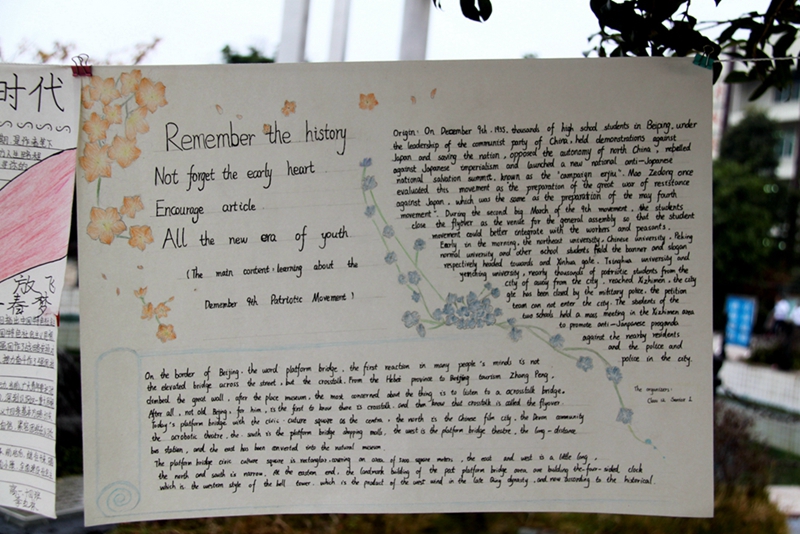 时代
放飞
春梦
Remember the history
Not forget the early heart
Encourage article
All the new era of youth
(The main content: learning about the
December 9th Patriotic Movement)
Origin: On December 9th, 1935, thousands of high school students in Beiping, under
the leadership of the communist party of China, held demonstrations against
Japan and saving the nation, opposed the autonomy of north China, rebelled
against Japanese imperialism and launched a new national anti-Japanese
national salvation summit, known as the "campaign enjiu". Mao Zedong once
evaluated this movement as the preparation of the great war of resistance
against Japan, which was the same as the preparation of the may fourth
movement". During the second big March of the 9th movement, the students
close the flyover as the venue for the general assembly so that the student
movement could better integrate with the workers and peasants.
Early in the morning, the northeast university, Chinese university, Peking
normal university and other school students field the banner and slogan
respectively headed towards and Xinhua gate. Tsinghua university and
yenching university, nearly thousands of patriotic students from the
city of away from the city, reached Xizhimen, the city
gte has been closed by the military police, the petition
team can not enter the city. The students of the
two schools held a mass meeting in the Xizhimen area
to promote anti-Japanese propganda
against the nearby residents
and the police and
police in the city.
The organizers:
Class
On the border of Beijing, the word platform bridge, the first reaction in many people's minds is not
the elevated bridge across the street, but the crosstalk. From the Hebei province to Beijing tourism Zhang Peng,
climbed the great wall, after the place museum, the most concerned about the thing is to listen to a acrosstalk bridge.
After all, not old Beijing, for him, is the first to know there is crosstalk, and then know that crosstalk is called the flyover.
Today's platform bridge with the civic culture square as the centre, the north is the Chinese film city, the Demm community
the acrobatic theatre, the south is the platform bridge shopping malls, the west is the platform bridge theatre, the long-distance
bus station, and the east has been converted into the natural museum.
The platform bridge civic culture square is rectangles, covering an area of square meters, the east and west is a little long,
the north and south is narrow. At the eastern end, the landmark building of the past platform bridge area are building the four-sided clock
which is the western style of the bell tower, which is the product of the west wind in the late Qing dynasty, and now according to the historical.